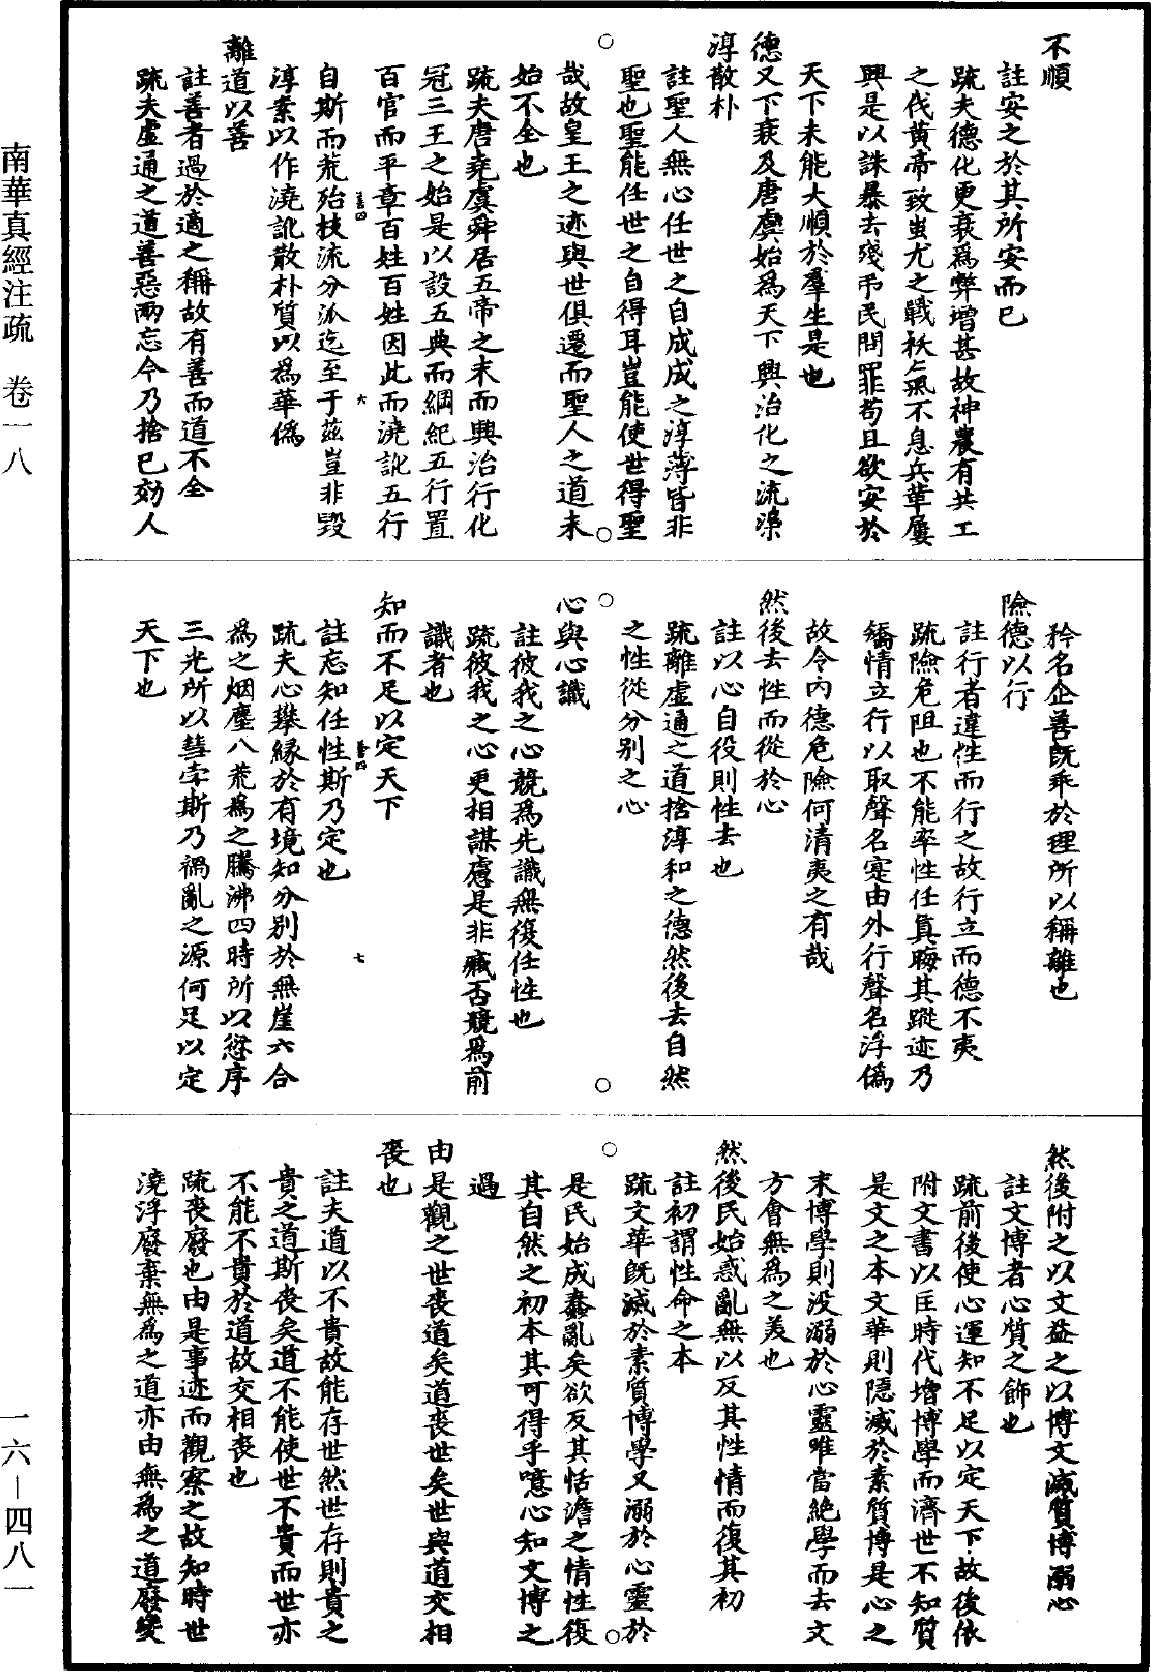 不順
註安之於其所安而已
疏夫德化更衰爲弊增甚故神農有共工
之伐黃帝致蚩尤之戰祅氣不息兵革屢
興是以誅暴去殘弔民問罪苟且欲安於
天下未能大順於羣生是也
德又下衰及唐虞始爲天下興治化之流澆
淳散朴
註聖人無心任世之自成成之淳薄皆非
聖也聖能任世之自得耳豈能使世得聖
哉故皇王之迹與世俱遷而聖人之道未
始不全也
疏夫唐堯虞舜居五帝之末而興治行化
冠三王之始是以設五典而綱紀五行置
百官而平章百姓百姓因此而澆訛五行
自斯而荒殆枝流分派迄至于茲豈非毀
淳素以作澆訛散朴質以爲華僞
離道以善
註善者過於適之稱故有善而道不全
疏夫虛通之道善惡兩忘今乃捨己効人
矜名企善旣乖於理所以稱離也
險德以行
註行者違性而行之故行立而德不夷
疏險危阻也不能率性任真晦其蹤迹乃
矯情立行以取聲名寔由外行聲名浮僞
故令內德危險何清夷之有哉
然後去性而從於心
註以心自役則性去也
疏離虛通之道捨淳和之德然後去自然
之性從分别之心
心與心識
註彼我之心競爲先識無復任性也
疏彼我之心更相謀慮是非臧否競爲前
識者也
知而不足以定天下
註忘知任性斯乃定也
疏夫心攀緣於有境知分别於無崖六合
爲之烟塵八荒爲之騰沸四時所以愆序
三光所以彗孛斯乃禍亂之源何足以定
天下也
然後附之以文益之以博文滅質博溺心
註文博者心質之飾也
疏前後使心運知不足以定天下故後依
附文書以匡時代增博學而濟世不知質
是文之本文華則隱滅於素質博是心之
末博學則没溺於心靈唯當絶學而去文
方會無爲之美也
然後民始惑亂無以反其性情而復其初
註初謂性命之本
疏文華旣滅於素質博學又溺於心靈於
是民始成蠢亂矣欲反其恬澹之情性復
其自然之初本其可得乎噫心知文博之
過
由是觀之世喪道矣道喪世矣世與道交相
喪也
註夫道以不貴故能存世然世存則貴之
貴之道斯喪矣道不能使世不貴而世亦
不能不貴於道故交相喪也
疏喪廢也由是事迹而觀察之故知時世
澆浮廢棄無爲之道亦由無爲之道廢變
南華真經注疏 卷一八
一六—四八一
善四 六
善四 七